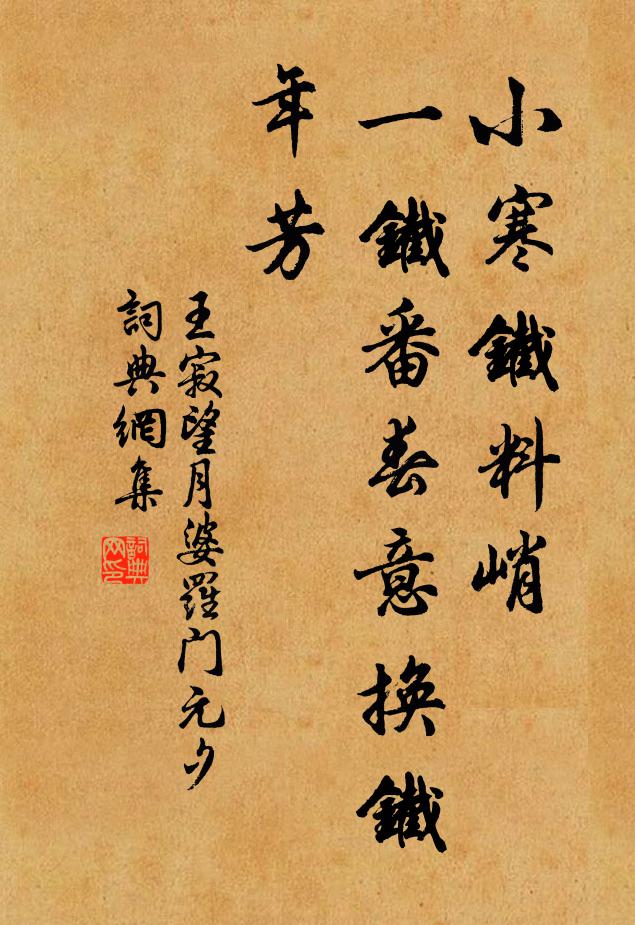 小寒鑯料峭
一鑯番春意換鑯
年芳
王寂望月婆羅门元夕
詞典網集
詞典
网印